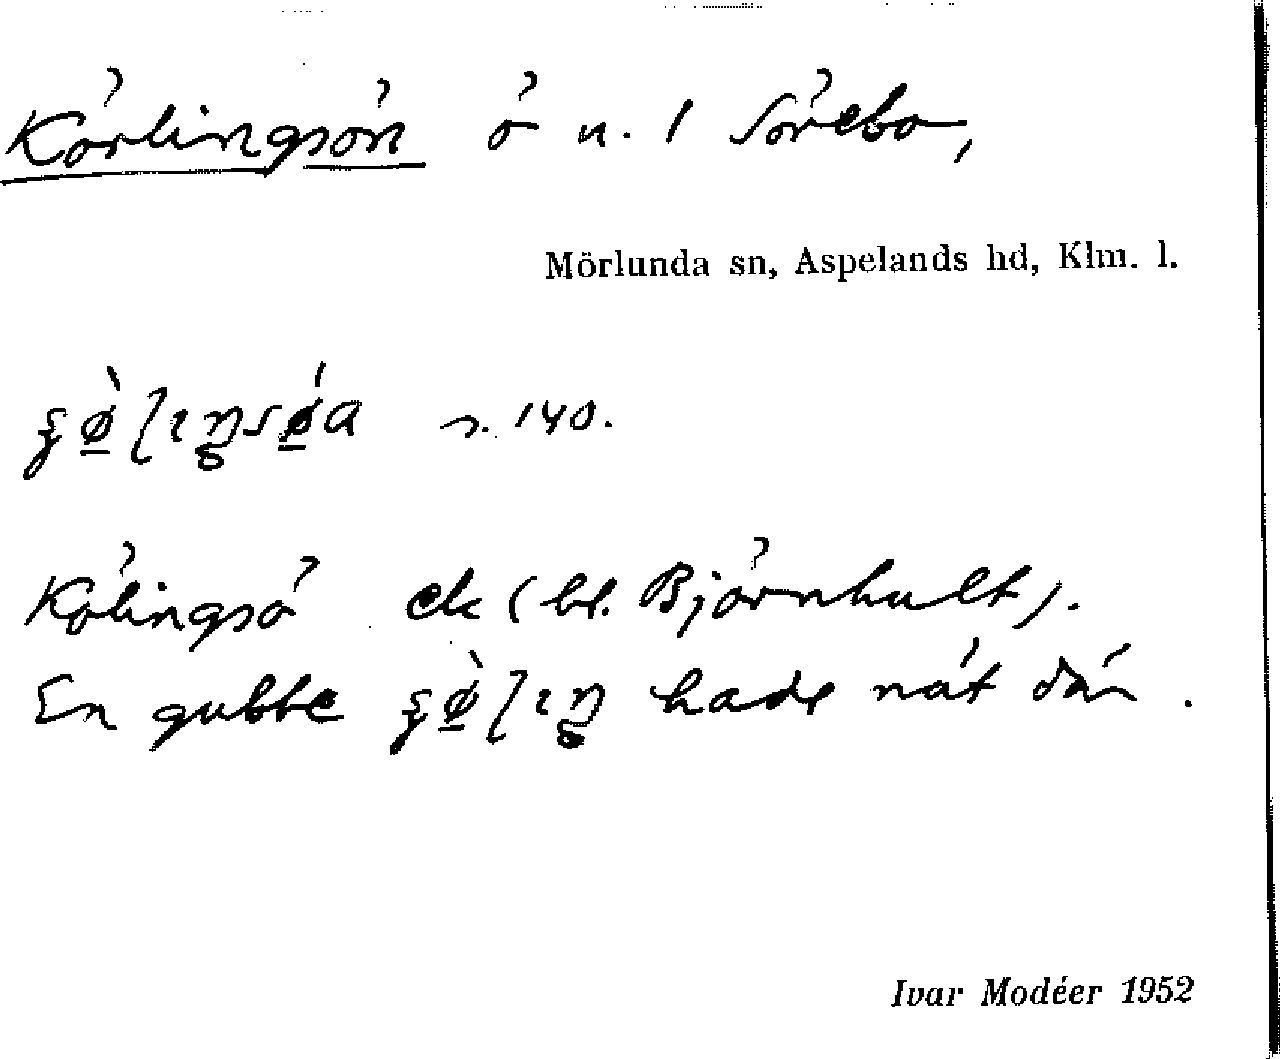 Körlingsön ö n. 1 Sörebo,
Mörlunda sn, Aspelands hd, Klm. l.
s. 140.
Kölingsö ek (bl. Björnhult).
En gubbe hade nåt där.
Ivar Modéer 1952